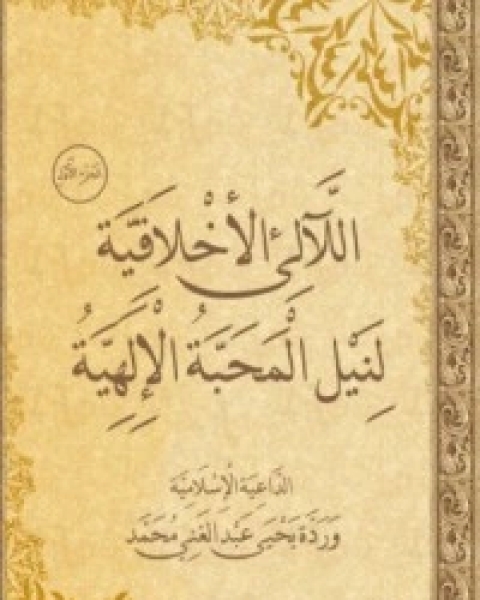 الجزء الأول
اللَّآلِئُ الأَخْلَاقِيَّة
لِنَيْلِ الْمَحَبَّةِ الْإِلَهِيَّةِ
الدَّاعِيَة الإِسْلَامِيَّة
وَرْدَة يَحْيَى عَبْدُ الغَنِي مُحَمَّد